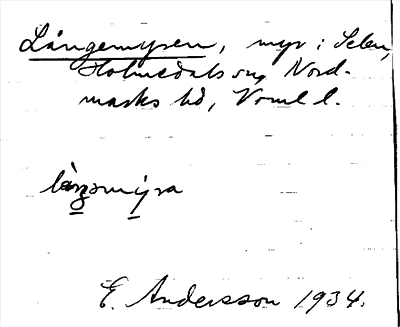 Långemyren, myr i Selen,
Holmedals sn, Nord-
marks hd, Vrml l.
E. Andersson 1934.